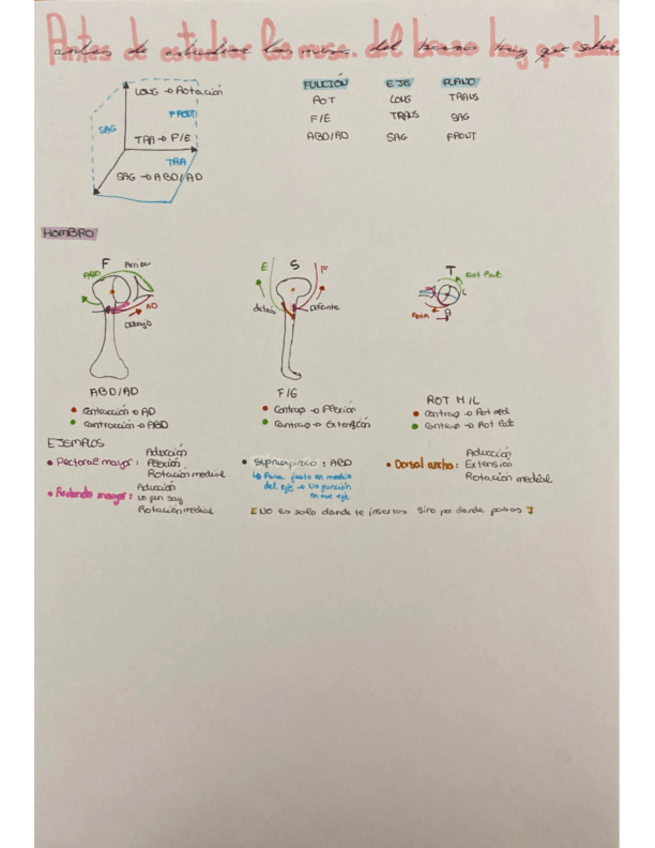 Antes de estudiar los musc. del brazo hay que saber.
LONG → Rotación
FRONT
SAG
TRA → F/E
TRA
SAG → ABD/AD
FUNCIÓN EJE PLANO
ROT LONG TRANS
F/E TRANS SAG
ABD/AD SAG FRONT
HOMBRO
F Arriba
ABD
AD
Debajo
ABD/AD
• Contracción → AD
• Contracción → ABD
E S F
detrás Delante
F/E
• Contrac → Flexión
• Contrac → Extensión
T
Rot Lat
L
Rotm
ROT M/L
• Contrac → Rot med
• Contrac → Rot Lat
EJEMPLOS
• Pectoral mayor: Aducción
Flexión
Rotación medial
• Redondo mayor: Aducción
Rotación medial
• Supraespinoso: ABD
↳ Pasa justo en medio
del eje → No función
en ese eje
• Dorsal ancho: Aducción
Extensión
Rotación medial
[No es solo donde te insertas sino por donde pasas]